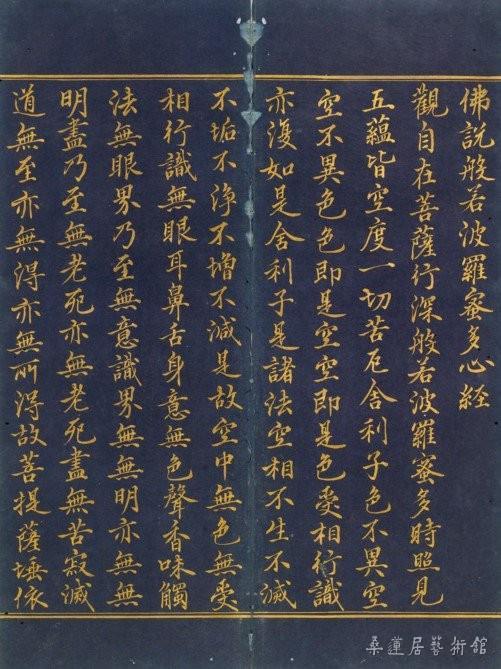 佛説般若波羅蜜多心經
觀自在菩薩行深般若波羅蜜多時照見
五蘊皆空度一切苦厄舍利子色不異空
空不異色色即是空空即是色受相行識
亦復如是舍利子是諸法空相不生不滅
不垢不淨不增不減是故空中無色無受
相行識無眼耳鼻舌身意無色聲香味觸
法無眼界乃至無意識界無無明亦無無
明盡乃至無老死亦無老死盡無苦寂滅
道無至亦無得亦無所得故菩提薩埵依
桑蓮居藝術館